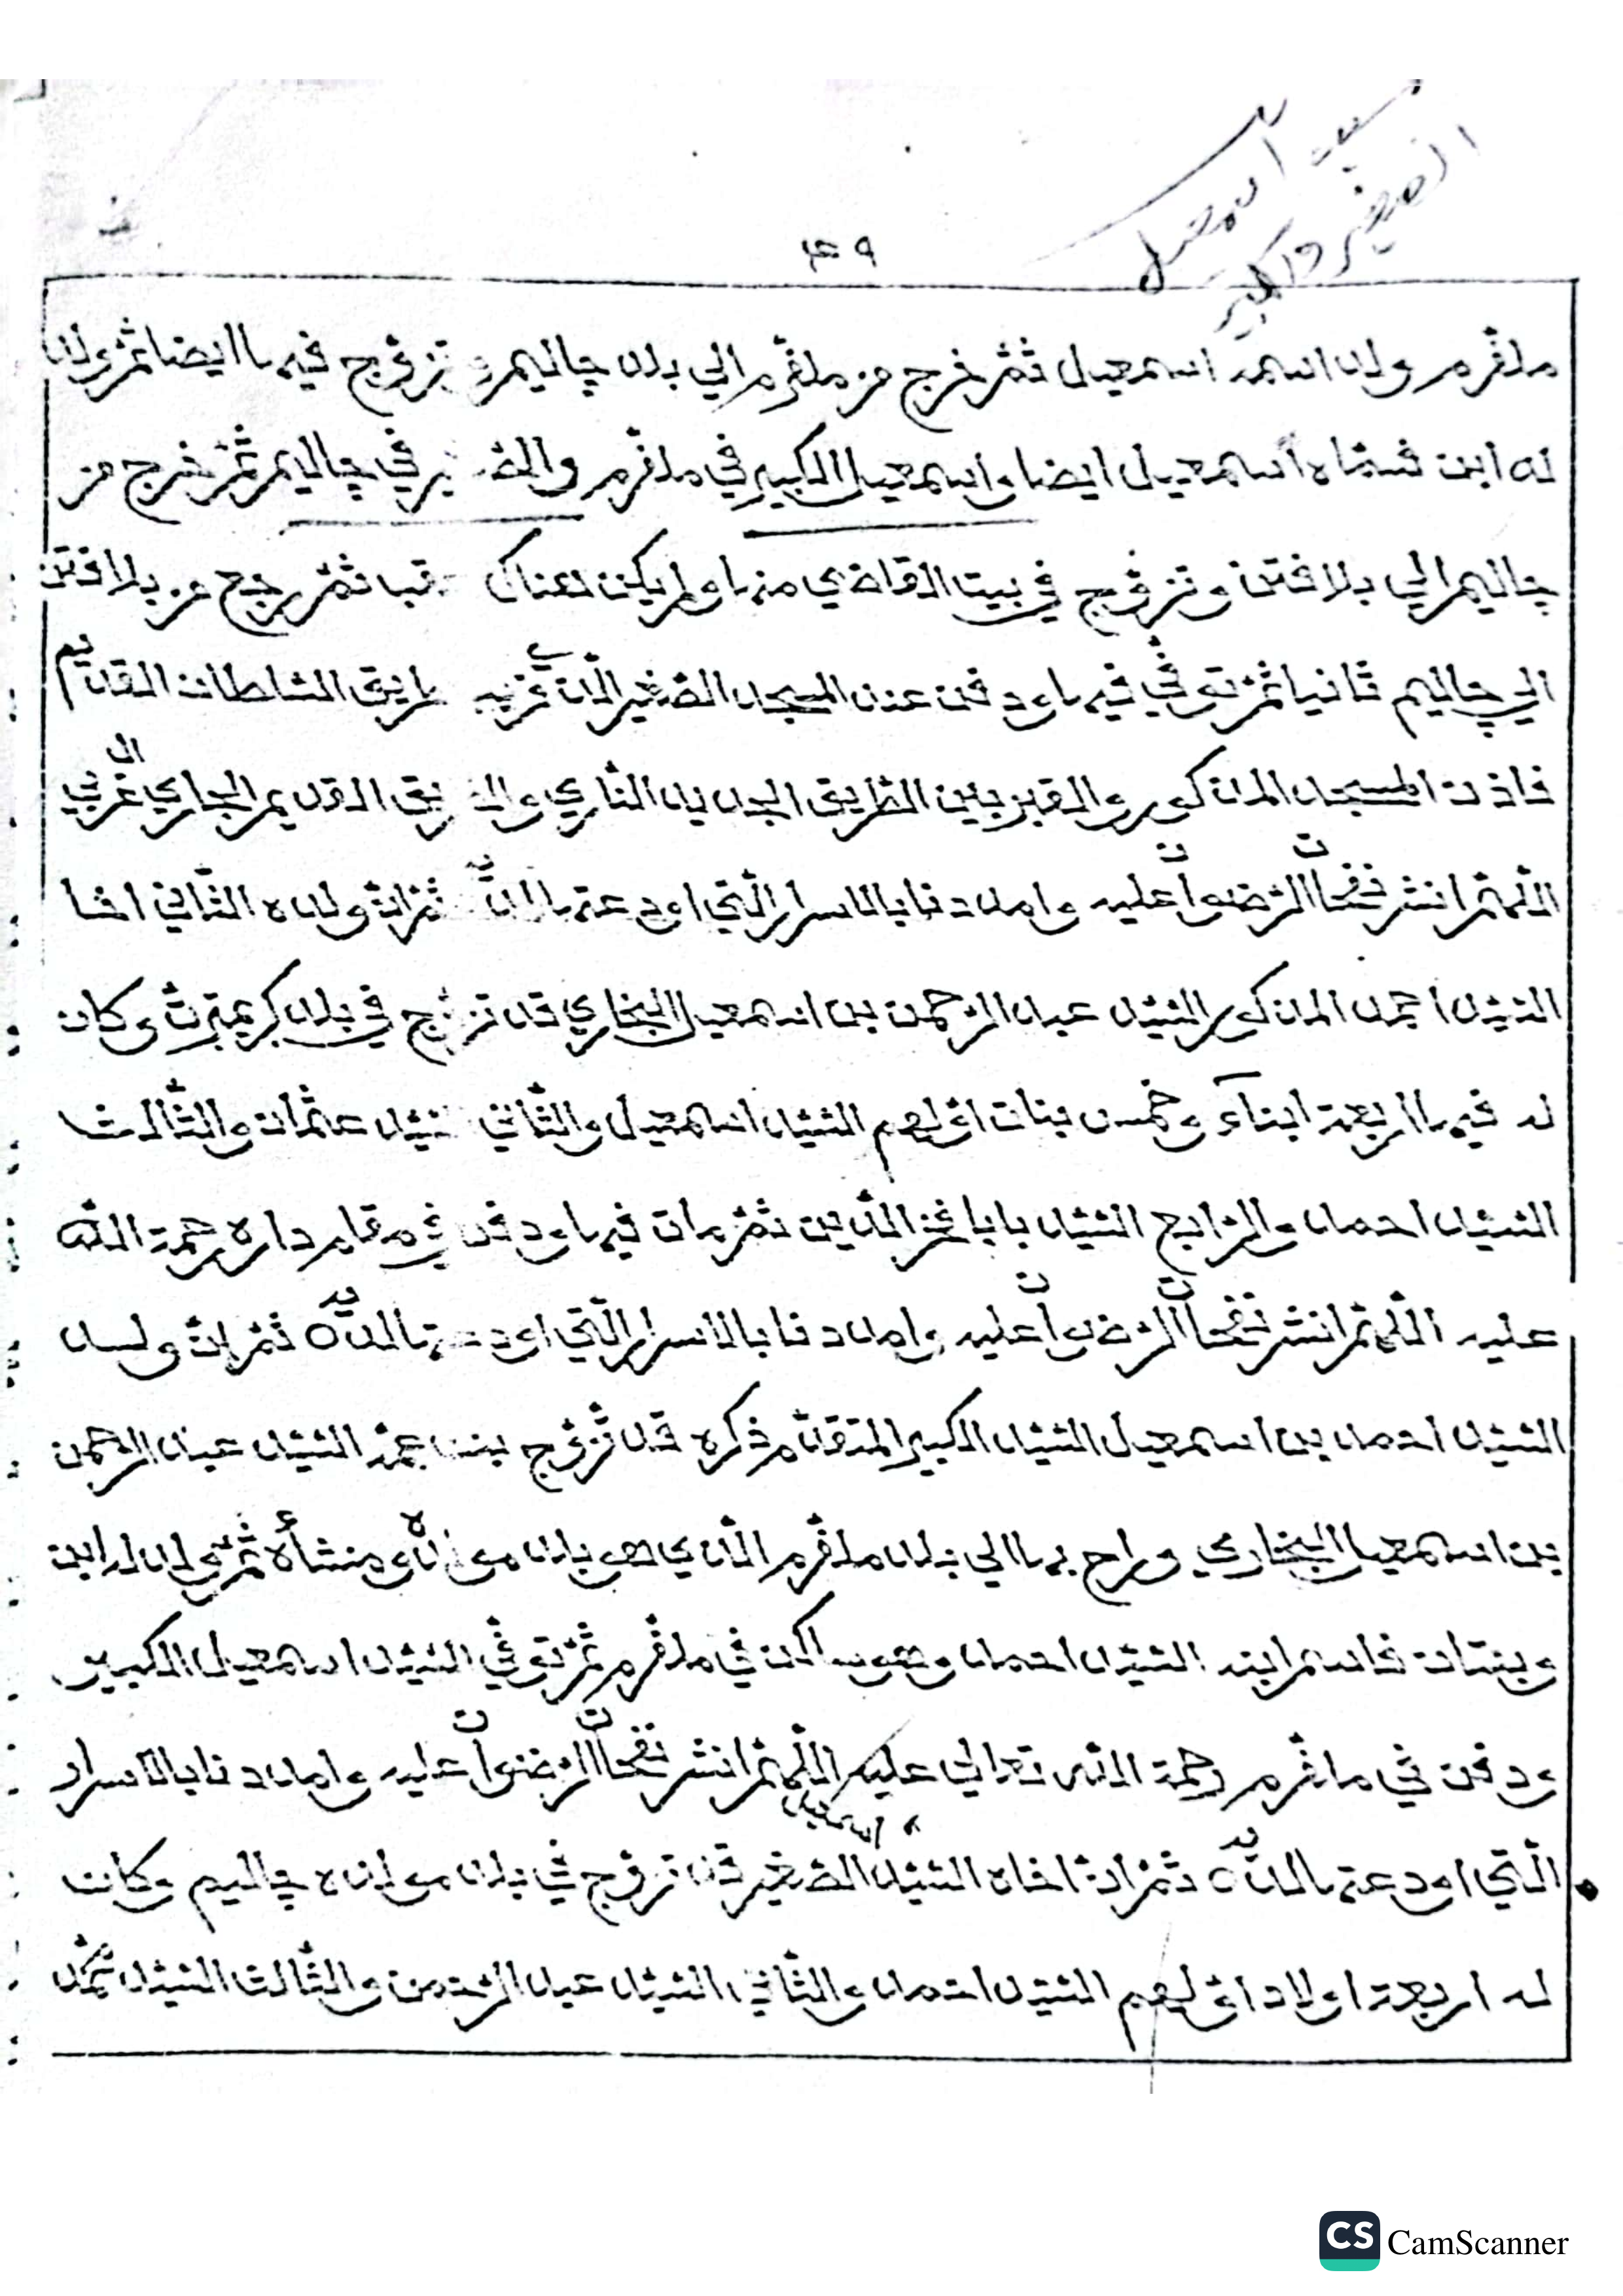 سيد اسمعيل
الصغير والكبير
٤٩
ملڤرم ولد اسمه اسمعيل ثمّ خرج من ملڤرم الي بلد چاليم و تزوّج فيها ايضا ثمّ ولد
له ابن فسمّاه اسمعيل ايضا واسمعيل الكبير في ملڤرم والصّغير في چاليم ثمّ خرج من
چاليم الي بلافتن وتزوّج في بيت القاضي منها ولم يكن هناك ثمّ رجع من بلافتن
الي چاليم ثانيا ثمّ توفّي فيها ودفن عند المسجد الصّغير الّذي غربيه طريق السّلطان القديم
فاذن المسجد المذكور والمقبر بين الطّريق الجديد النّاري والطّريق القديم الجاري الى غربي
اللّهمّ انشر نفحات الرّضوان عليه وامدنا بالاسرار الّتي اودعتها لديه ثمّ انّ ولده الثّاني اخا
السّيّد احمد المذكور السّيّد عبد الرّحمن بن اسمعيل البخاري قد تزوّج في بلد كريمبتر وكان
له فيها اربعة ابناء وخمس بنات اوّلهم السّيّد اسمعيل والثّاني السّيّد عثمان والثّالث
السّيّد احمد والرّابع السّيّد بابا فخر الدّين ثمّ مات فيها ودفن في مقام داره رحمة اللّه
عليه اللّهمّ انشر نفحات الرّضوان عليه وامدنا بالاسرار الّتي اودعتها لديه ثمّ انّ ولد
السّيّد احمد بن اسمعيل السّيّد الكبير المتقدّم ذكره قد تزوّج بنت عمّه السّيّد عبد الرّحمن
بن اسمعيل البخاري وراح بها الي بلد ملڤرم الّذي هو بلد مولده ومنشأه ثمّ ولد له ابن
وبنتان فاسم ابنه السّيّد احمد وهو ساكن في ملڤرم ثمّ توفّي السّيّد اسمعيل الكبير
ودفن في ملڤرم رحمة اللّه تعالي عليه اللّهمّ انشر نفحات الرّضوان عليه وامدنا بالاسرار
الّتي اودعتها لديه ثمّ انّ اخاه السّيّد اسمعيل الصّغير قد تزوّج في بلد مولده چاليم وكان
له اربعة اولاد اوّلهم السّيّد احمد والثّاني السّيّد عبد الرّحمن والثّالث السّيّد محمّد
CS CamScanner